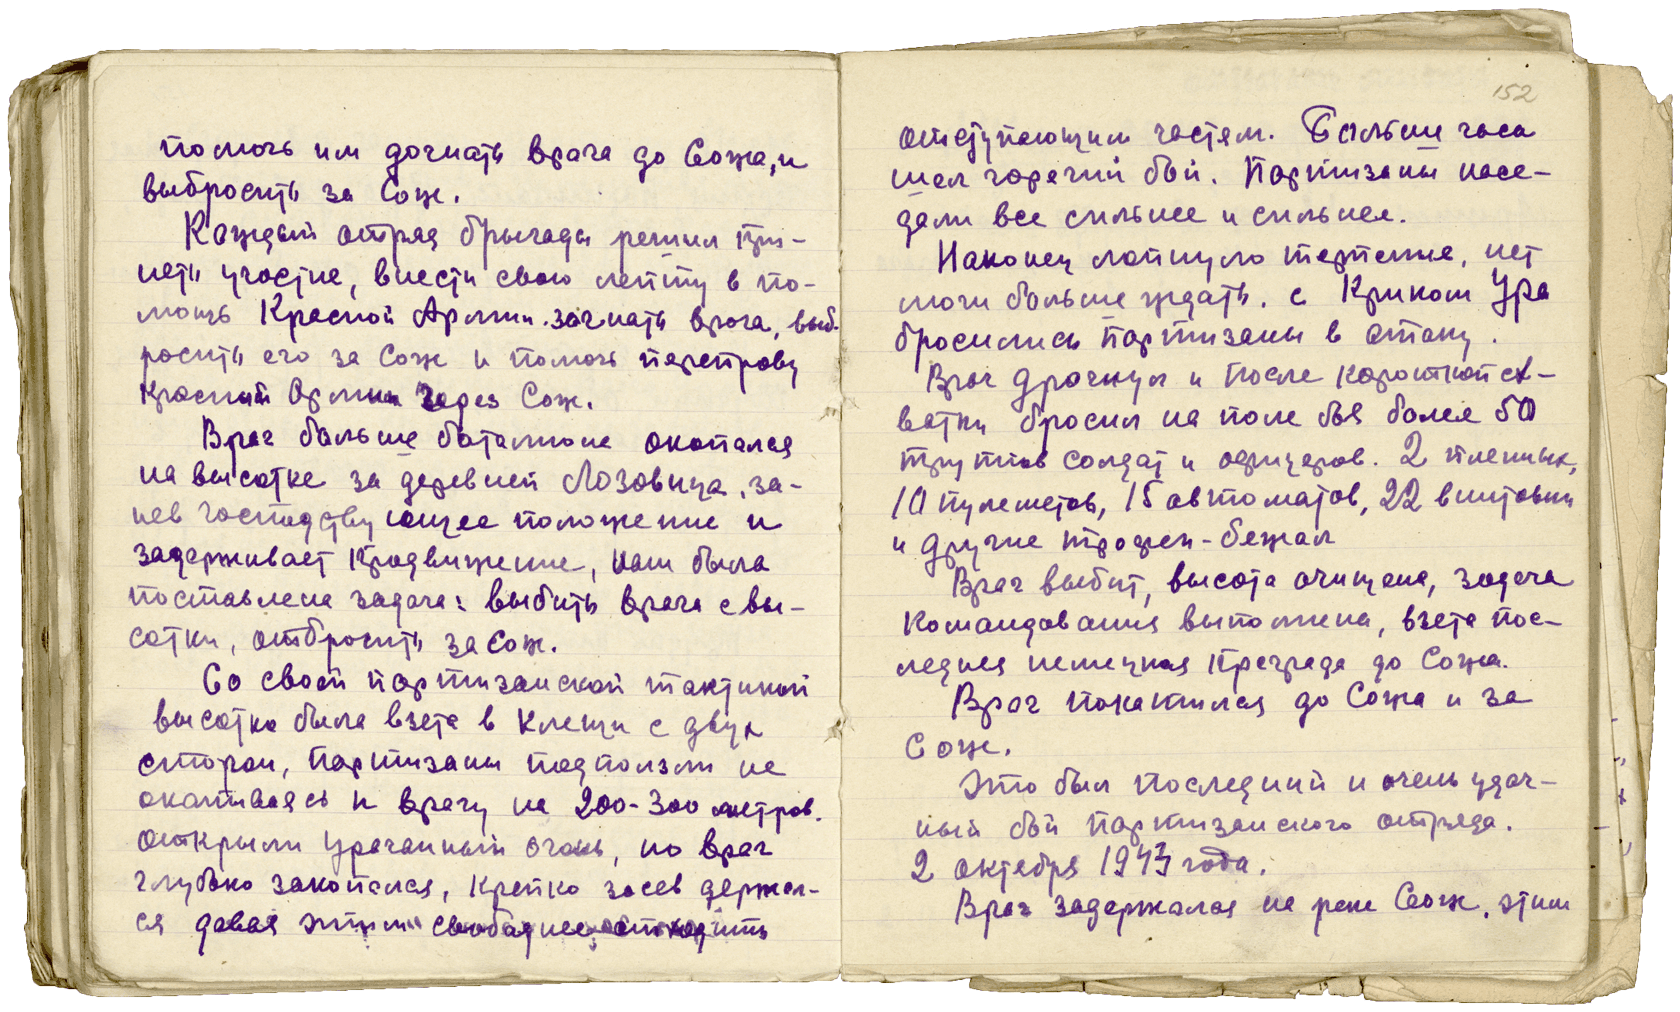 помочь им догнать врага до Сожа, и
выбросить за Сож.
Каждый отряд брыгады решил при-
неть участие, внести свою лепту в по-
мощь Красной Армии. загнать врага, выб-
росить его за Сож и помочь перетправу
красный Армии через Сож.
Враг больше батальоне окопался
на высотке за деревней Лозовица, за-
нев господствующее положение и
задерживает продвижение, нам была
поставлена задача: выбить врага с вы-
сотки, отбросить за Сож.
Со своей партизанской тактикой
высотка была взета в клещи с двух
сторон, партизаны подползли не
окапываясь к врагу на 200-300 метров.
открыли ураганный огонь, но враг
глубоко закопался, крепко засев держал-
ся давая этим свободнее отходить
152
отступающим частям. Больше часа
шел горячий бой. Партизаны насе-
дали все сильнее и сильнее.
Наконец лопнуло терпение, нет
мочи больше ждать. с Криком Ура
бросились партизаны в атаку.
Враг дрогнул и после короткой сх-
ватки бросил на поле боя более 50
трупов солдат и офицеров. 2 пленных,
10 пулеметов, 15 автоматов, 22 винтовки
и другие трофеи - бежал
Враг выбит, высота очищена, задача
командования выполнена, взета пос-
ледняя немецкая преграда до Сожа.
Враг покатился до Сожа и за
Сож.
Это был последний и очень удач-
ный бой партизанского отряда.
2 октября 1943 года.
Враг задержался на реке Сож, этим